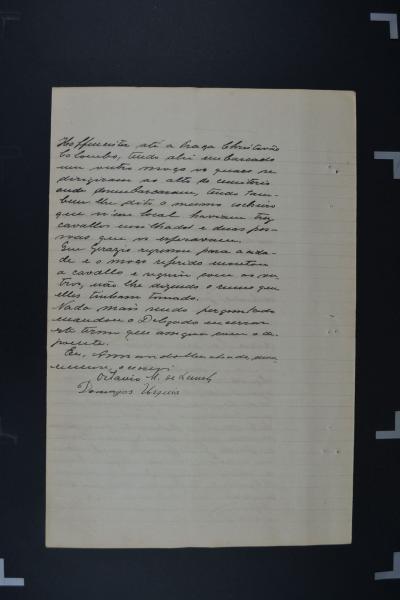 Hoffmeister até a Praça Christovão
Colombo, tendo ahi embarcado
um outro moço os quaes se
dirigiram ao alto do cemiterio
onde desembarcaram, tendo tam-
bem lhe dito o mesmo cocheiro
que nesse local haviam trez
cavallos encilhados e duas pes-
soas que os esperavam.
Que Grazio regressou para a cida-
de e o moço referido montou
a cavallo e seguiu com os ou-
tros, não lhe dizendo o rumo que
elles tinham tomado.
Nada mais sendo perguntado
mandou o Delegado encerrar
este termo que assigna com o de-
poente. 
Eu, Armando
o escrevi
Octavio M. de
Domingos